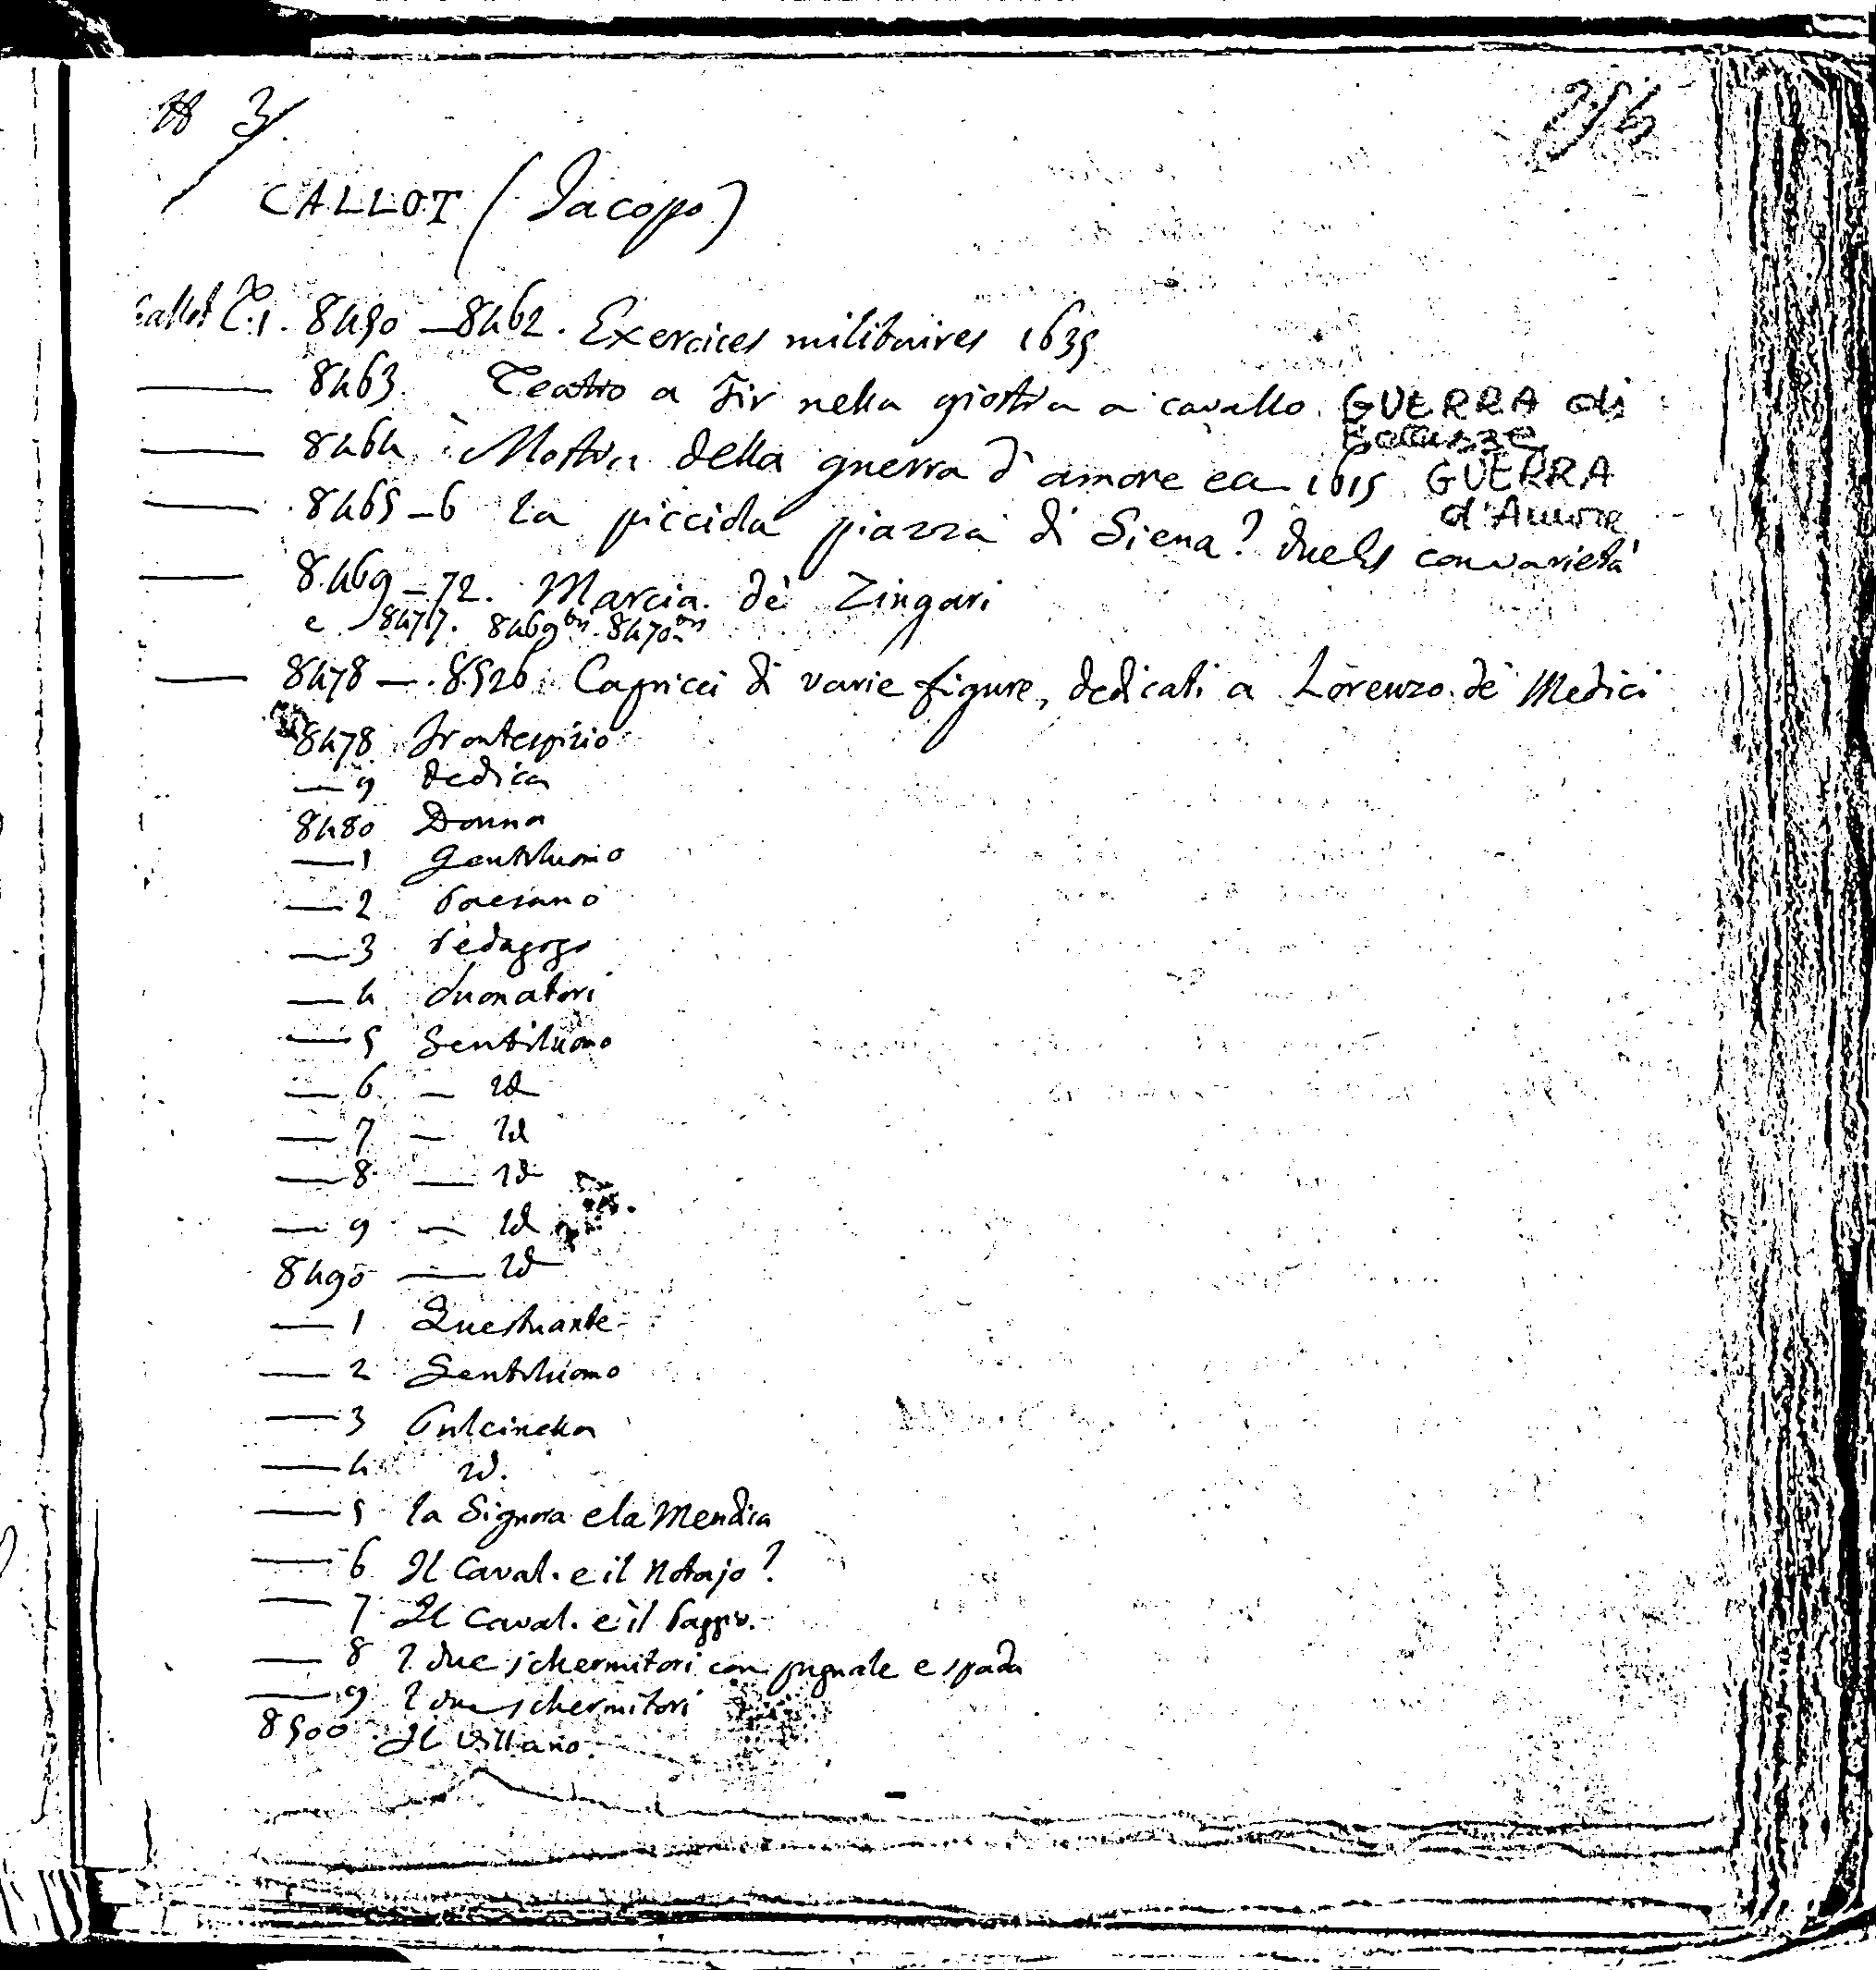 3
CALLOT (Jacopo)
Callot C. 1. 8450 — 8462. Exercices militaires 1635
—— 8463. Teatro a Fir nella giostra a cavallo GUERRA di
Bellezze
—— 8464 Mostra della guerra d'amore ea 1615 GUERRA
d'Amore
—— 8465 – 6 La picciola piazza di Siena? duels con varietà
—— 8469 – 72. Marcia de' Zingari
e 8477. 8469bis. 8470bis
—— 8478 — 8526 Capricci di varie figure, dedicati a Lorenzo de' Medici
8478 Frontespizio
— 9 dedica
8480 Donna
— 1 gentiluomo
— 2 Paesano
— 3 Pedagogo
— 4 Suonatori
— 5 Gentiluomo
— 6 — Id
— 7 — Id
— 8 — Id
— 9 — Id
8490 — Id
— 1 Questuante
— 2 Gentiluomo
— 3 Pulcinella
— 4 id.
— 5 la Signora e la Mendica
— 6 Il Caval. e il Notajo?
— 7 Il Caval. e il Paggio.
— 8 I due schermitori con pugnale e spada
— 9 I due schermitori
8500 Il Villano